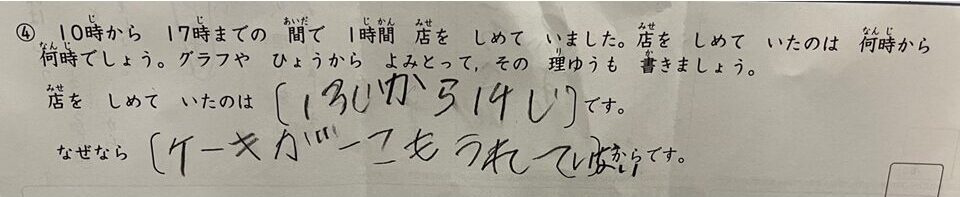 ④ 10時から 17時までの 間で 1時間 店を しめて いました。店を しめて いたのは 何時から
何時でしょう。グラフや ひょうから よみとって、その 理ゆうも 書きましょう。
店を しめて いたのは (13じから14じ)です。
なぜなら (ケーキが一こもうれていない)からです。